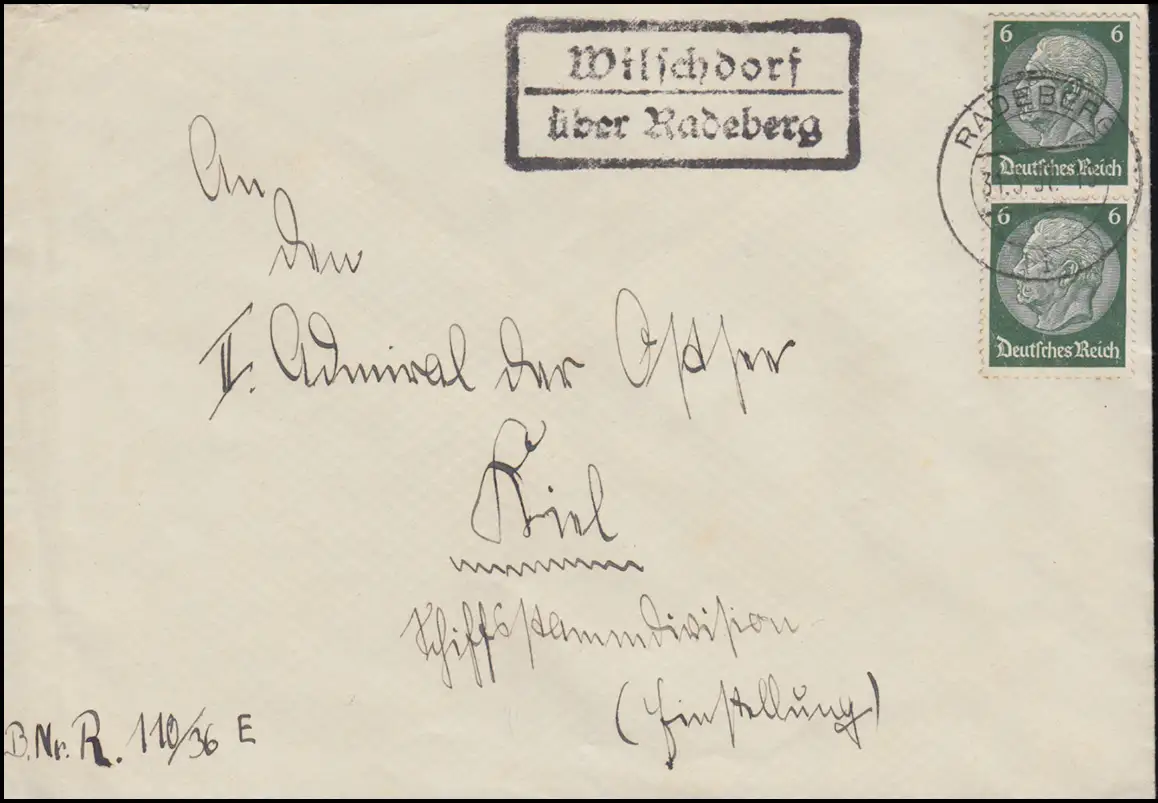 Wilschdorf
über Radeberg
6 6
RADEBERG
Deutsches Reich
6 6
Deutsches Reich
An
den
II. Admiral der Ostsee
Kiel
Schiffsstammdivision
(Einstellung)
B.Nr. R. 110/36 E